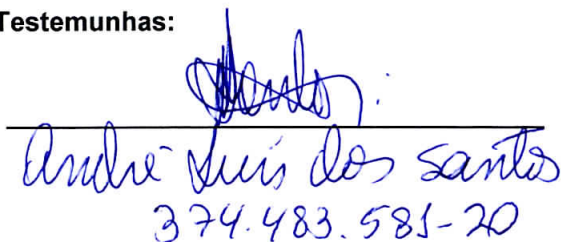 Testemunhas:
André Luis dos Santos
374.483.581-20